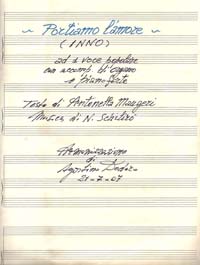 ~ Portiamo l'amore ~
(INNO)
ad 1 voce popolare
con accomp. d'Organo
o pianoforte
Testo di Antonella Maugeri
Musica di N. Schilirò
Armonizzazione
di
Agostino
21-7-07